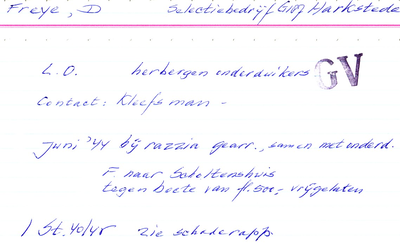 Freye, D Selectiebedrijf G107 Harkstede
L.O. herbergen onderduikers GV
Contact: Kleefsman -
Juni '44 bij razzia gearr., samen met onderd.
F. naar Scholtenshuis
tegen boete van fl. 500,- vrijgelaten
St. 40/45 zie schaderapp.